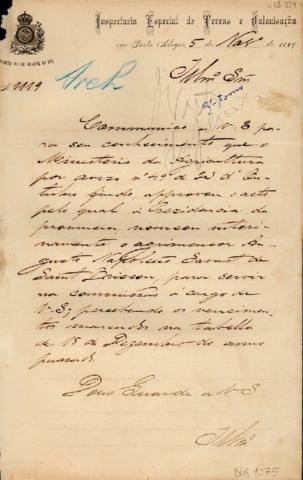 Inspectoria Especial de Terras e Colonisação
em Porto Alegre, 5 de Nov.º de 1889
Nº 1119
Arch
Illmº Snr.
Communico a V. S. pa-
ra seu conhecimento que o
Ministerio da Agricultura
por aviso nº 49 de 22 d' Ou-
tubro findo, approvou o acto
pelo qual a Presidencia da
provincia, nomeou interi-
namente o agrimensor Au-
gusto Napoleão
Saint Brisson, para servir
na commissão á cargo de
V. S.; percebendo os vencimen-
tos marcados na tabella
de 18 de Dezembro do anno
passado.
Deus Guarde a V. S.
Illmº
1075